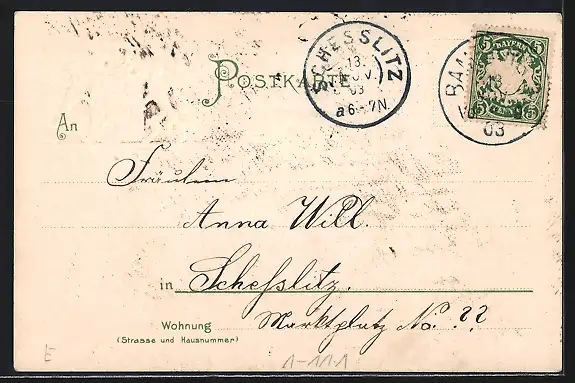 SCHESSLITZ
13.
NOV.
03
a6-7N.
POSTKARTE
BAYERN
5 5
5 5
BA
03
An
Fräulein
Anna Will.
in Scheßlitz.
Wohnung Marktplatz No. ??
(Strasse und Hausnummer)
E
1-111